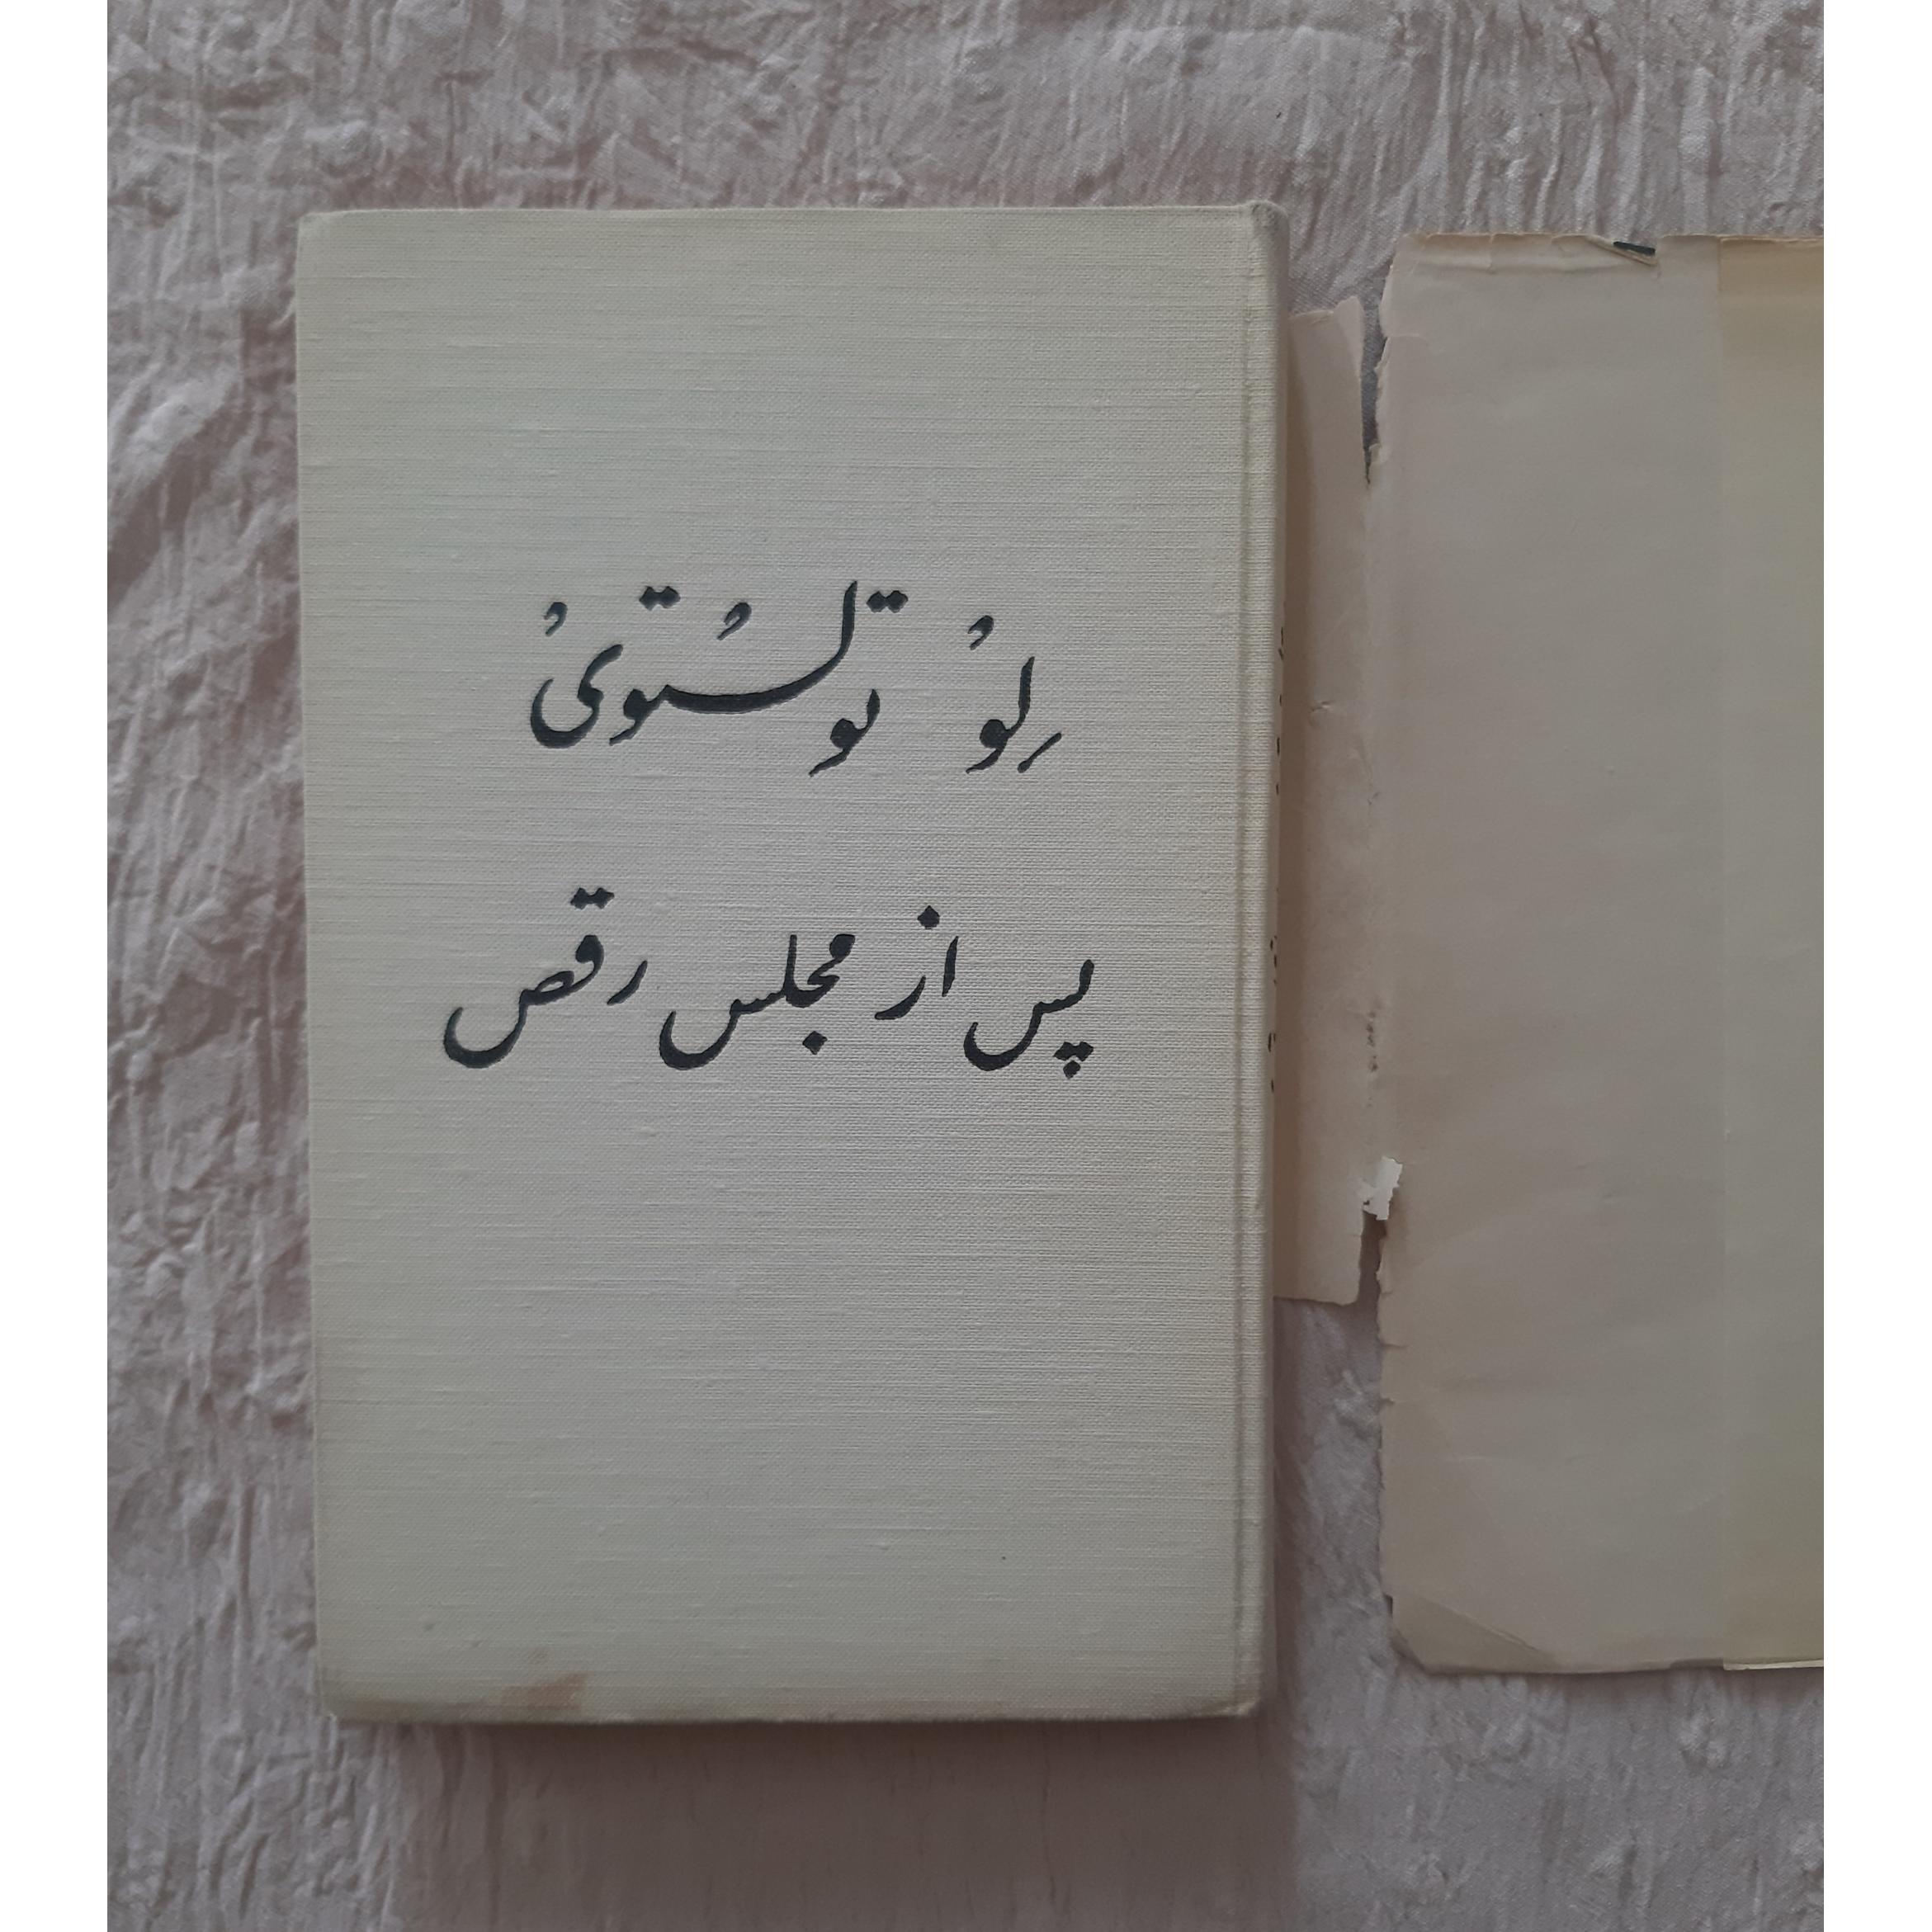 لِوُ تولستُویُ
پس از مجلس رقص